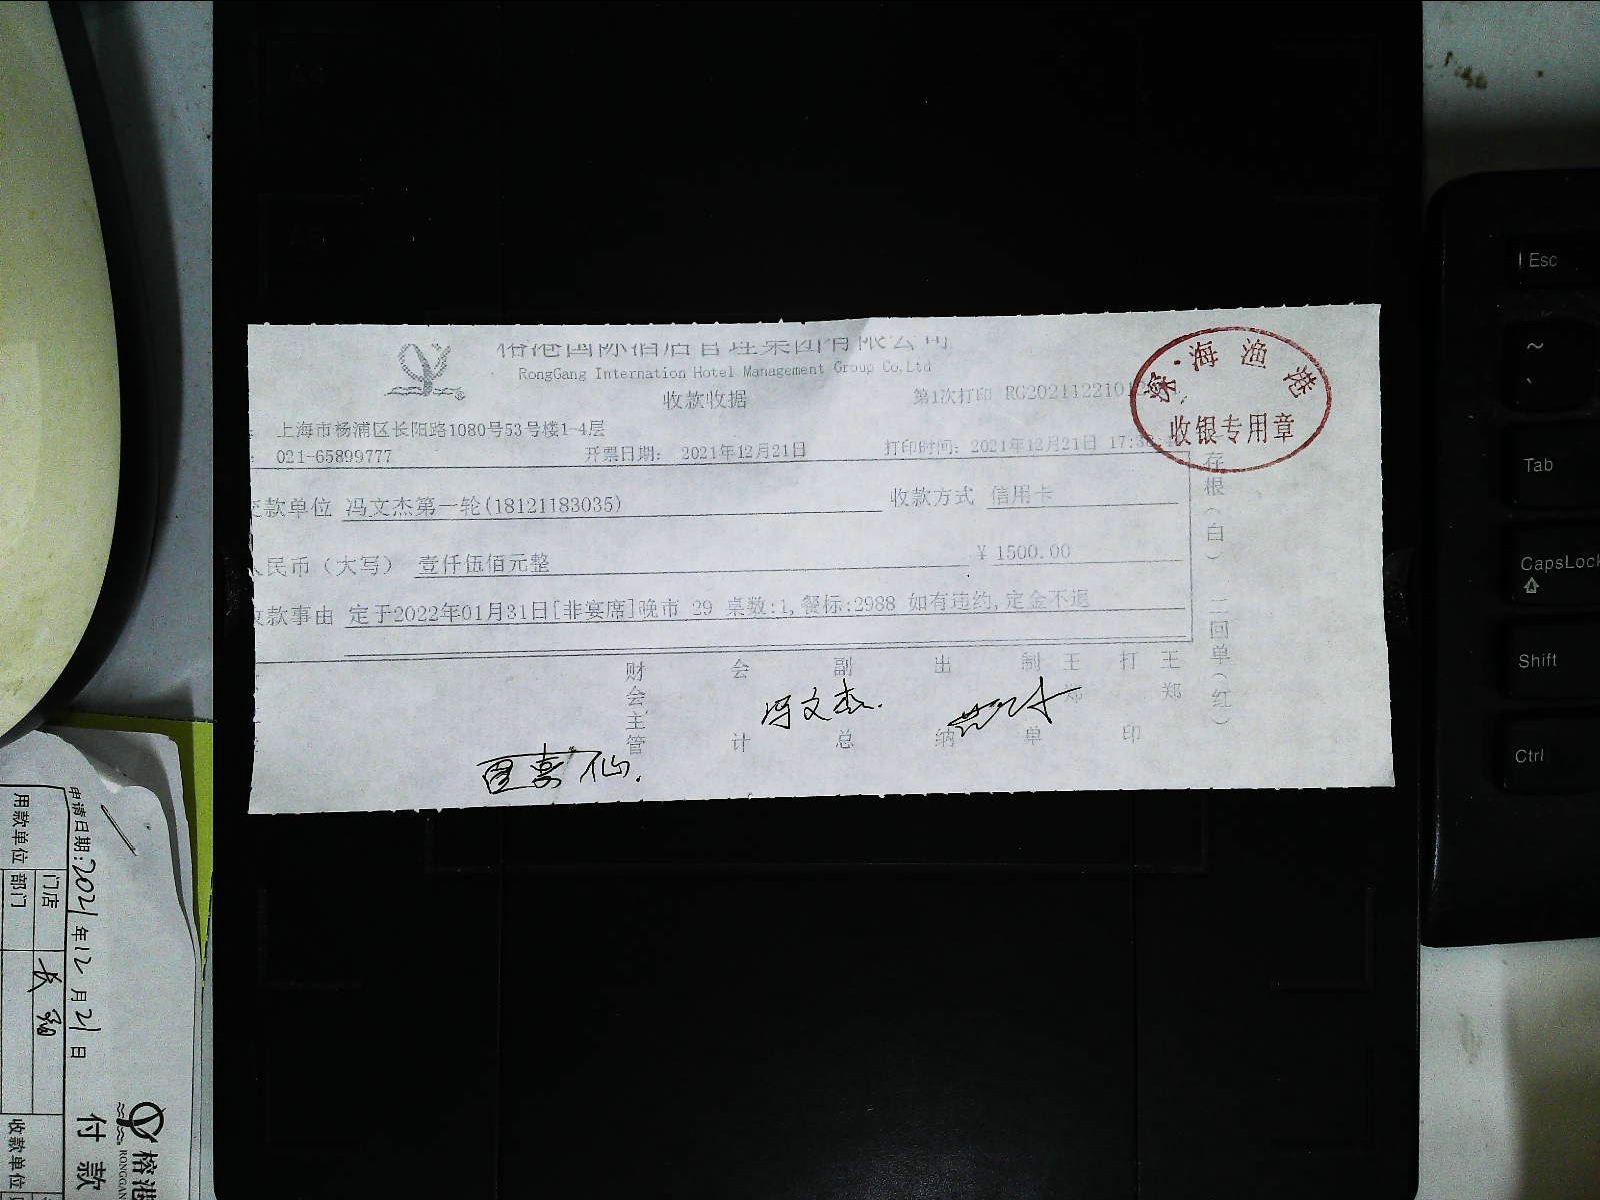 榕港国际酒店管理集团有限公司
RongGang Internation Hotel Management Group Co.Ltd
收款收据
第1次打印 RG2021122101
深海渔港
收银专用章
上海市杨浦区长阳路1080号53号楼1-4层
021-65899777 开票日期: 2021年12月21日 打印时间: 2021年12月21日 17:
交款单位 冯文杰第一轮(18121183035) 收款方式 信用卡
人民币(大写) 壹仟伍佰元整 ¥ 1500.00
收款事由 定于2022年01月31日[非宴席]晚市 29 桌数:1,餐标:2988 如有违约,定金不退
存根(白) 二回单(红)
财会主管 会计 副总 出纳 制单 王郑 打印 王郑
冯文杰.
申请日期:2021年12月21日
用款单位 门店
部门
收款单位
付款
榕港
RONGGAN
Esc
~
Tab
CapsLock
Shift
Ctrl